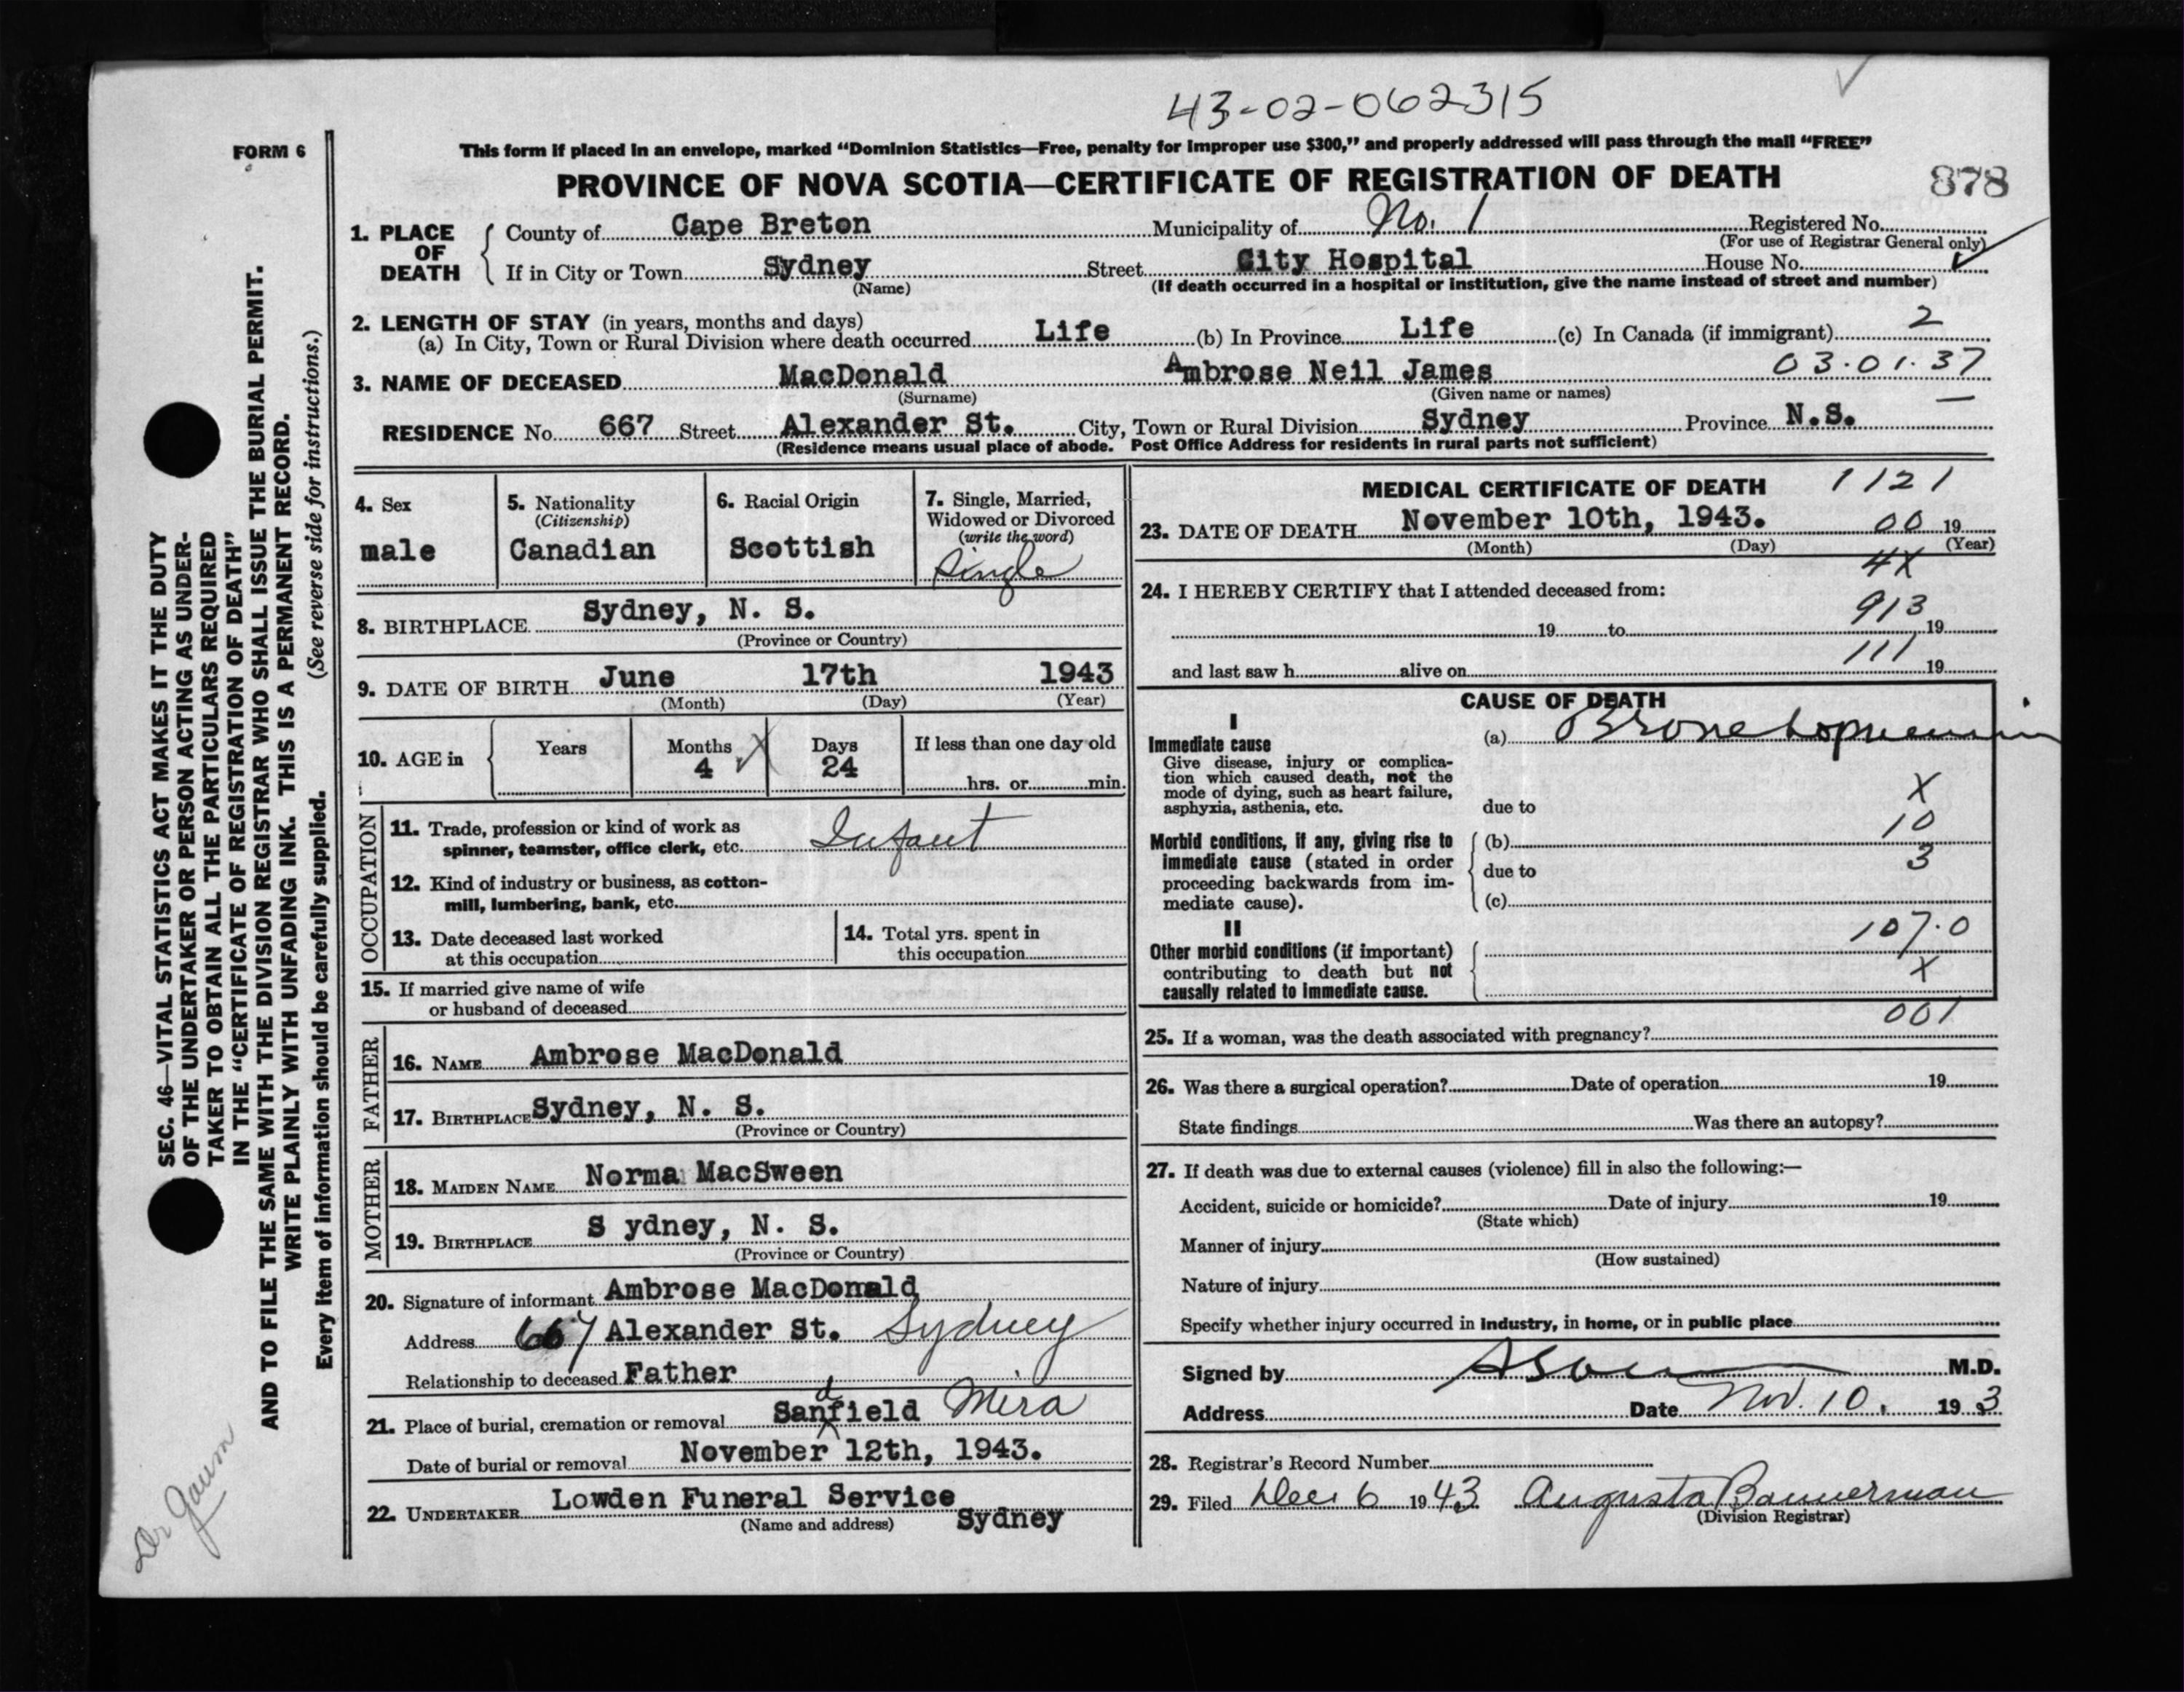 43-02-062315
FORM 6
This form if placed in an envelope, marked “Dominion Statistics—Free, penalty for improper use $300,” and properly addressed will pass through the mail “FREE”
PROVINCE OF NOVA SCOTIA—CERTIFICATE OF REGISTRATION OF DEATH
878
1. PLACE OF DEATH
County of Cape Breton Municipality of No. 1 Registered No.
(For use of Registrar General only)
If in City or Town Sydney Street City Hospital House No.
(Name) (If death occurred in a hospital or institution, give the name instead of street and number)
2. LENGTH OF STAY (in years, months and days)
(a) In City, Town or Rural Division where death occurred Life (b) In Province Life (c) In Canada (if immigrant) 2
3. NAME OF DECEASED MacDonald Ambrose Neil James 03.01.37
(Surname) (Given name or names)
RESIDENCE No. 667 Street Alexander St. City, Town or Rural Division Sydney Province N.S.
(Residence means usual place of abode. Post Office Address for residents in rural parts not sufficient)
4. Sex
male
5. Nationality
(Citizenship)
Canadian
6. Racial Origin
Scottish
7. Single, Married,
Widowed or Divorced
(write the word)
Single
8. BIRTHPLACE Sydney, N. S.
(Province or Country)
9. DATE OF BIRTH June 17th 1943
(Month) (Day) (Year)
10. AGE in
Years
Months
4
Days
24
If less than one day old
hrs. or min.
OCCUPATION
11. Trade, profession or kind of work as
spinner, teamster, office clerk, etc. Infant
12. Kind of industry or business, as cotton-
mill, lumbering, bank, etc.
13. Date deceased last worked
at this occupation
14. Total yrs. spent in
this occupation
15. If married give name of wife
or husband of deceased
FATHER
16. NAME Ambrose MacDonald
17. BIRTHPLACE Sydney, N. S.
(Province or Country)
MOTHER
18. MAIDEN NAME Norma MacSween
19. BIRTHPLACE S ydney, N. S.
(Province or Country)
20. Signature of informant Ambrose MacDonald
Address 667 Alexander St. Sydney
Relationship to deceased Father
21. Place of burial, cremation or removal Sandfield Mira
Date of burial or removal November 12th, 1943.
22. UNDERTAKER Lowden Funeral Service
(Name and address) Sydney
MEDICAL CERTIFICATE OF DEATH 1121
23. DATE OF DEATH November 10th, 1943. 00 19
(Month) (Day) (Year)
4X
24. I HEREBY CERTIFY that I attended deceased from:
913
19 to 19
111
and last saw h alive on 19
CAUSE OF DEATH
I
Immediate cause
Give disease, injury or complica-
tion which caused death, not the
mode of dying, such as heart failure,
asphyxia, asthenia, etc.
(a) Bronchopneumonia
X
due to
10
Morbid conditions, if any, giving rise to
immediate cause (stated in order
proceeding backwards from im-
mediate cause).
(b)
3
due to
(c)
II
Other morbid conditions (if important)
contributing to death but not
causally related to immediate cause.
107.0
X
001
25. If a woman, was the death associated with pregnancy?
26. Was there a surgical operation? Date of operation 19
State findings Was there an autopsy?
27. If death was due to external causes (violence) fill in also the following:—
Accident, suicide or homicide? Date of injury 19
(State which)
Manner of injury
(How sustained)
Nature of injury
Specify whether injury occurred in industry, in home, or in public place
Signed by M.D.
Address Date Nov. 10, 19 3
28. Registrar's Record Number
29. Filed Dec 6 1943 Augusta Bannerman
(Division Registrar)
SEC. 46—VITAL STATISTICS ACT MAKES IT THE DUTY
OF THE UNDERTAKER OR PERSON ACTING AS UNDER-
TAKER TO OBTAIN ALL THE PARTICULARS REQUIRED
IN THE “CERTIFICATE OF REGISTRATION OF DEATH”
AND TO FILE THE SAME WITH THE DIVISION REGISTRAR WHO SHALL ISSUE THE BURIAL PERMIT.
WRITE PLAINLY WITH UNFADING INK. THIS IS A PERMANENT RECORD.
Every item of information should be carefully supplied. (See reverse side for instructions.)
Dr Gaum